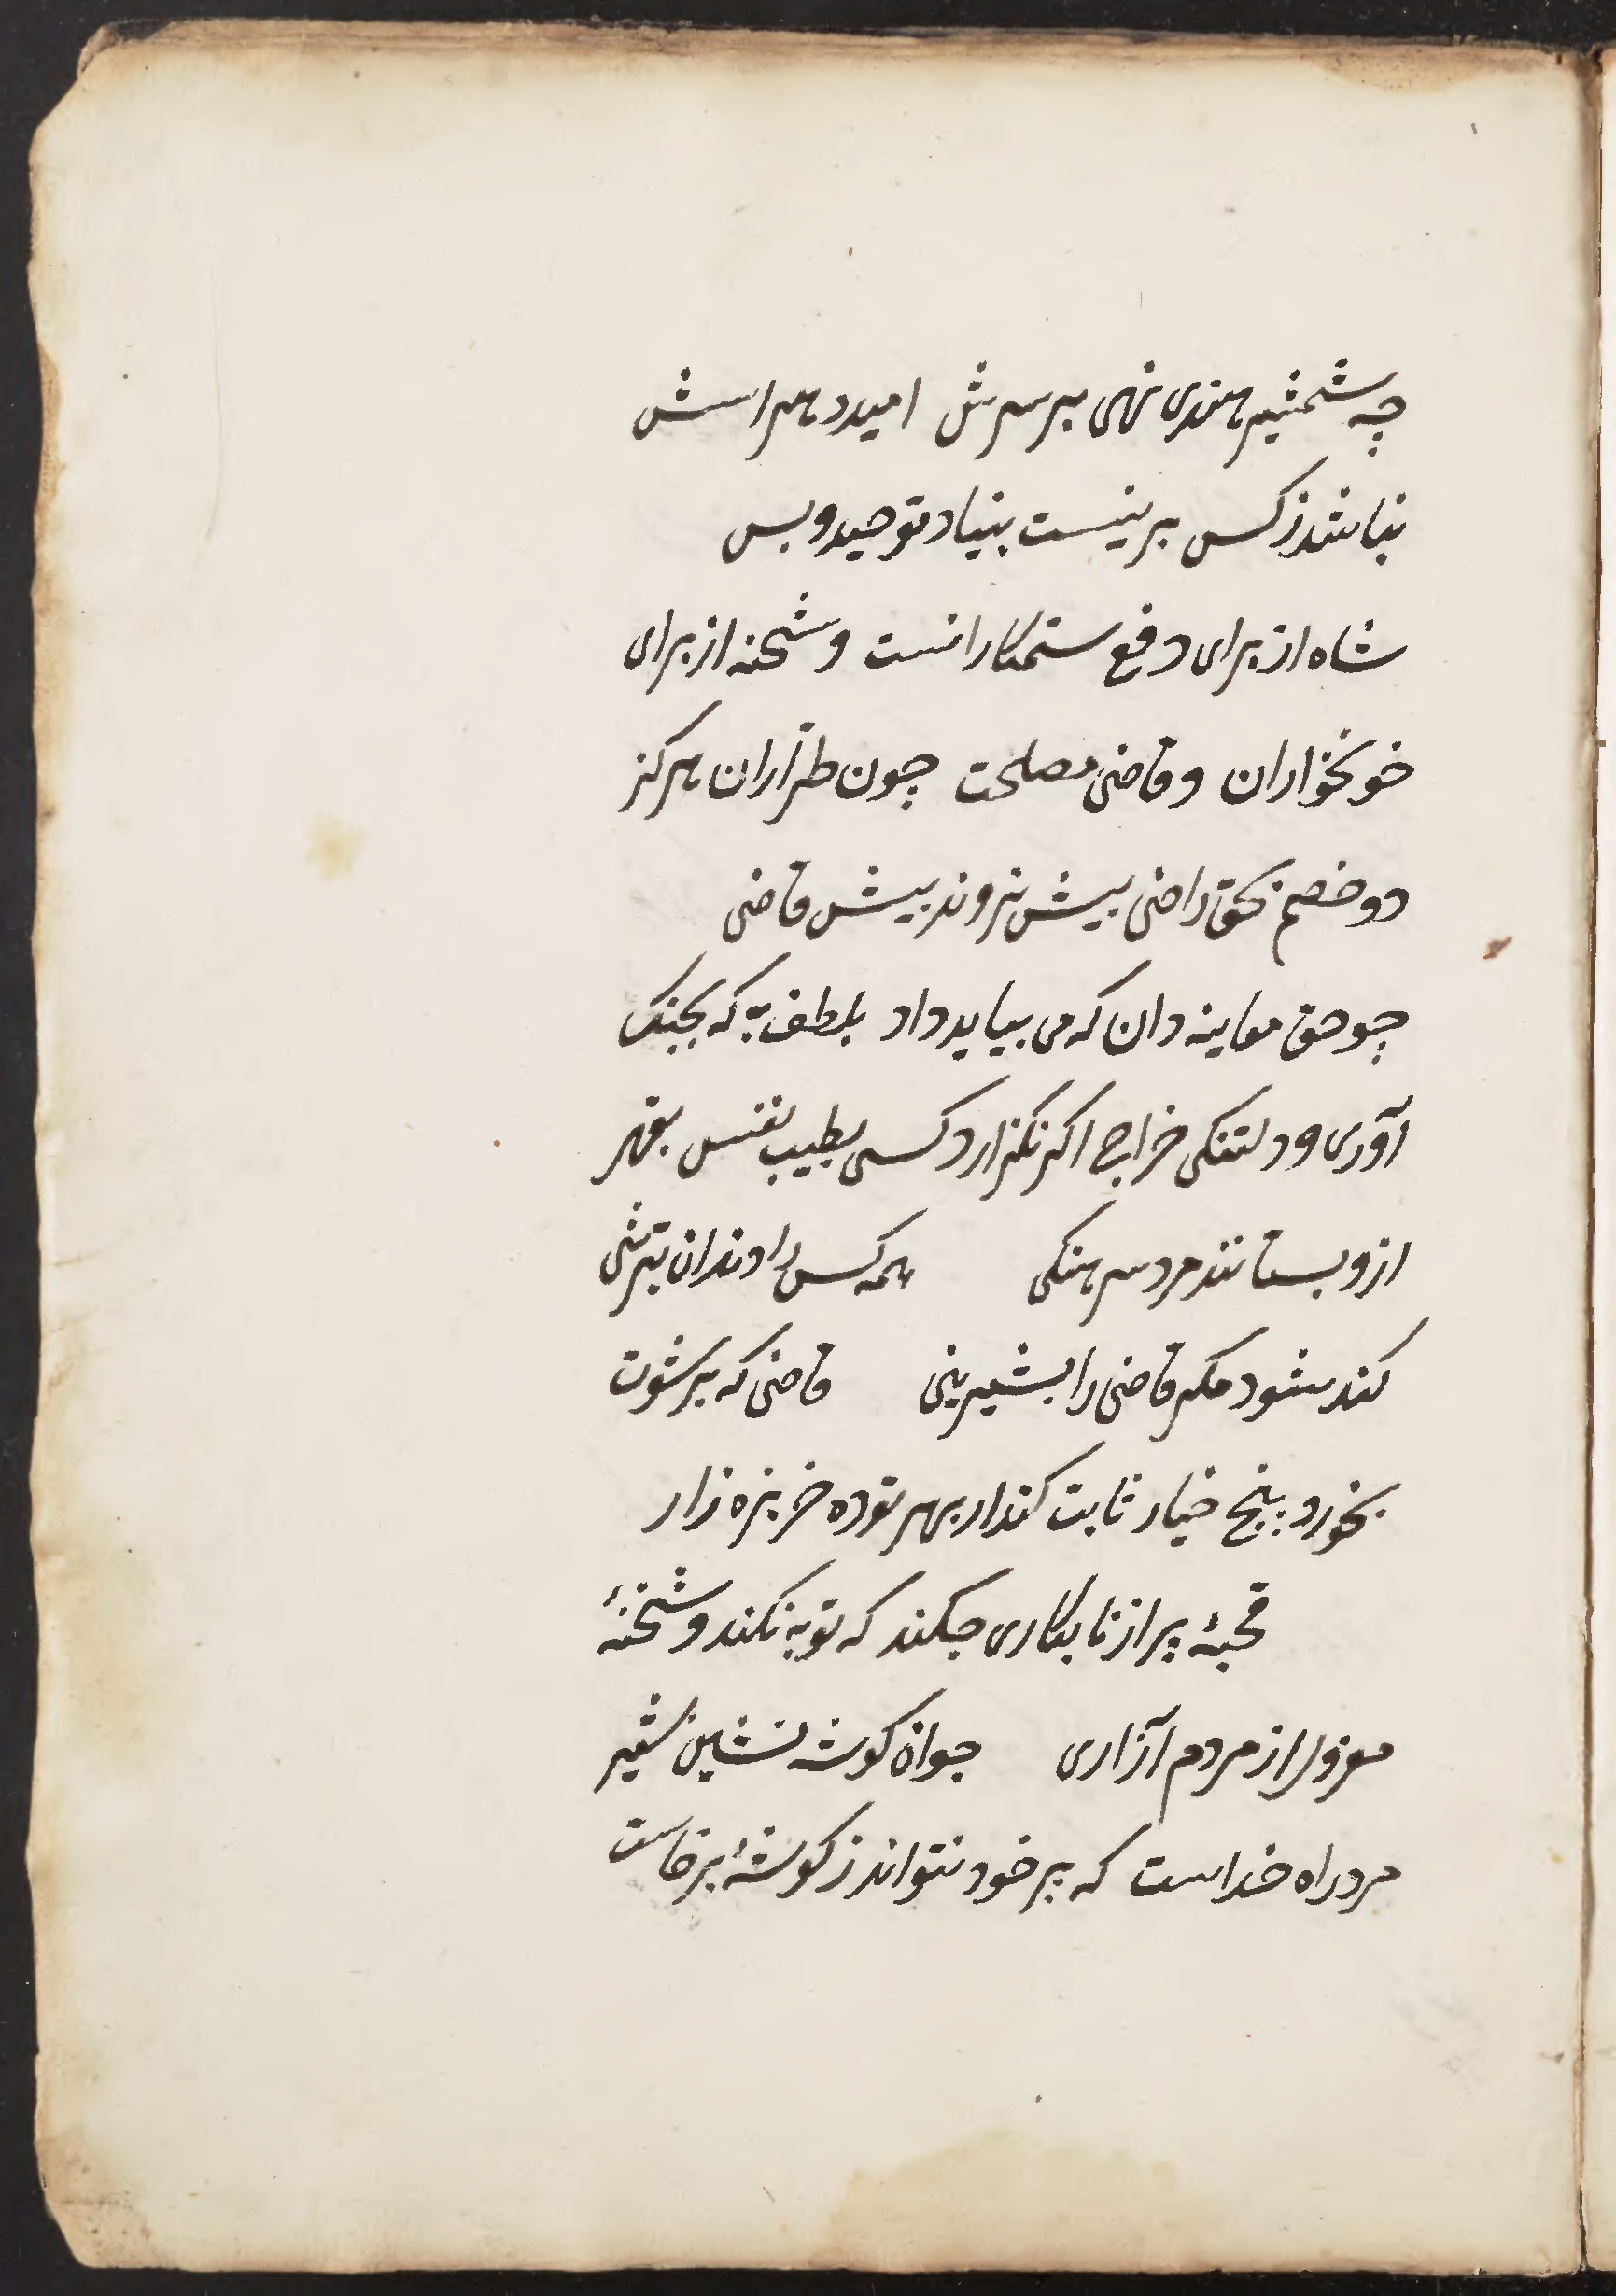 چه شمشیر هندی نهی بر سرش امید و هراسش
نباشد زکس برینست بنیاد توحید و بس
شاه از برای دفع ستمکارانست و شحنه از برای
خونخواران و قاضی مصلحت چون طرّاران هرکز
دو خصم بحق راضی بیش نروند بیش قاضی
چو حق معاینه دان که می بباید داد بلطف به که بجنک
آوری و دلتنکی خراج اکر نکزارد کسی بطیب نفس بقهر
ازو بستانند مرد سرهنکی همه کس را دندان بترشی
کند شود مکر قاضی را بشیرینی قاضی که برشوت
بخورد پنج خیار ثابت کند از بهر توده خربزه زار
قحبهٔ پیر از نابکاری چکند که توبه نکند و شحنهٔ
معزول از مردم آزاری جوان کوشه نشین شیر
مرد راه خداست که پیر خود نتواند ز کوشهٔ برخاست